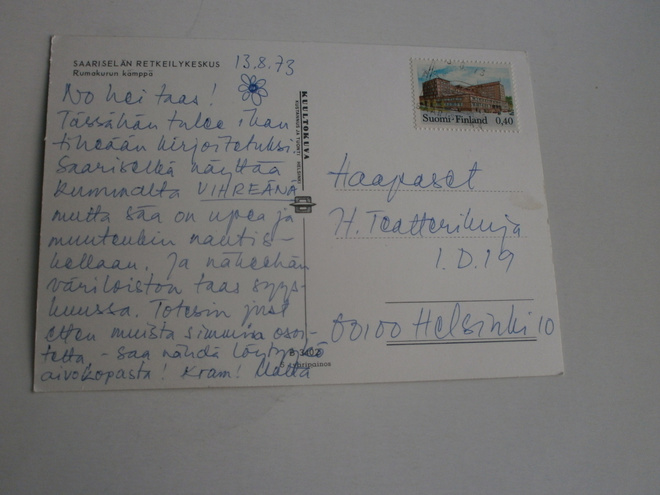 SAARISELÄN RETKEILYKESKUS
Rumakurun kämppä
13.8.73
No hei taas!
Tässähän tulee ihan
tiheään kirjoitetuksi.
Saariselkä näyttää
kummalta VIHREÄNÄ
mutta sää on upea ja
muutenkin nautis-
kellaan. Ja näkeehän
väriloiston taas syys-
kuussa. Totesin just
etten muista sinun osoi-
tetta, - saa nähdä löytyykö
aivokopasta! Kram!
KUULTOKUVA
HELSINKI
Suomi-Finland
0,40
Haapaset
H. Teatterikuja
1.D.19
00100 Helsinki 10